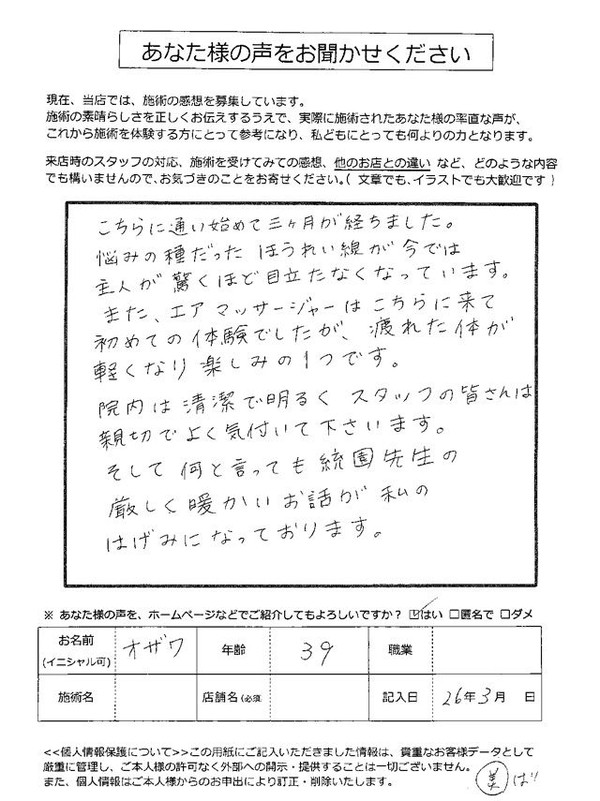 あなた様の声をお聞かせください
現在、当店では、施術の感想を募集しています。
施術の素晴らしさを正しくお伝えするうえで、実際に施術されたあなた様の率直な声が、
これから施術を体験する方にとって参考になり、私どもにとっても何よりの力となります。
来店時のスタッフの対応、施術を受けてみての感想、他のお店との違い など、どのような内容
でも構いませんので、お気づきのことをお寄せください。( 文章でも、イラストでも大歓迎です )
こちらに通い始めて三ヶ月が経ちました。
悩みの種だった ほうれい線が今では
主人が驚くほど目立たなくなっています。
また、エアマッサージャーはこちらに来て
初めての体験でしたが、疲れた体が
軽くなり楽しみの1つです。
院内は清潔で明るく スタッフの皆さんは
親切でよく気付いて下さいます。
そして 何と言っても統園先生の
厳しく暖かいお話が私の
はげみになっております。
※ あなた様の声を、ホームページなどでご紹介してもよろしいですか? ☑はい □匿名で □ダメ
お名前 オザワ 年齢 39 職業
(イニシャル可)
施術名 店舗名(必須 記入日 26年3月 日
<<個人情報保護について>>この用紙にご記入いただきました情報は、貴重なお客様データとして
厳重に管理し、ご本人様の許可なく外部への開示・提供することは一切ございません。
また、個人情報はご本人様からのお申出により訂正・削除いたします。
美 ばり